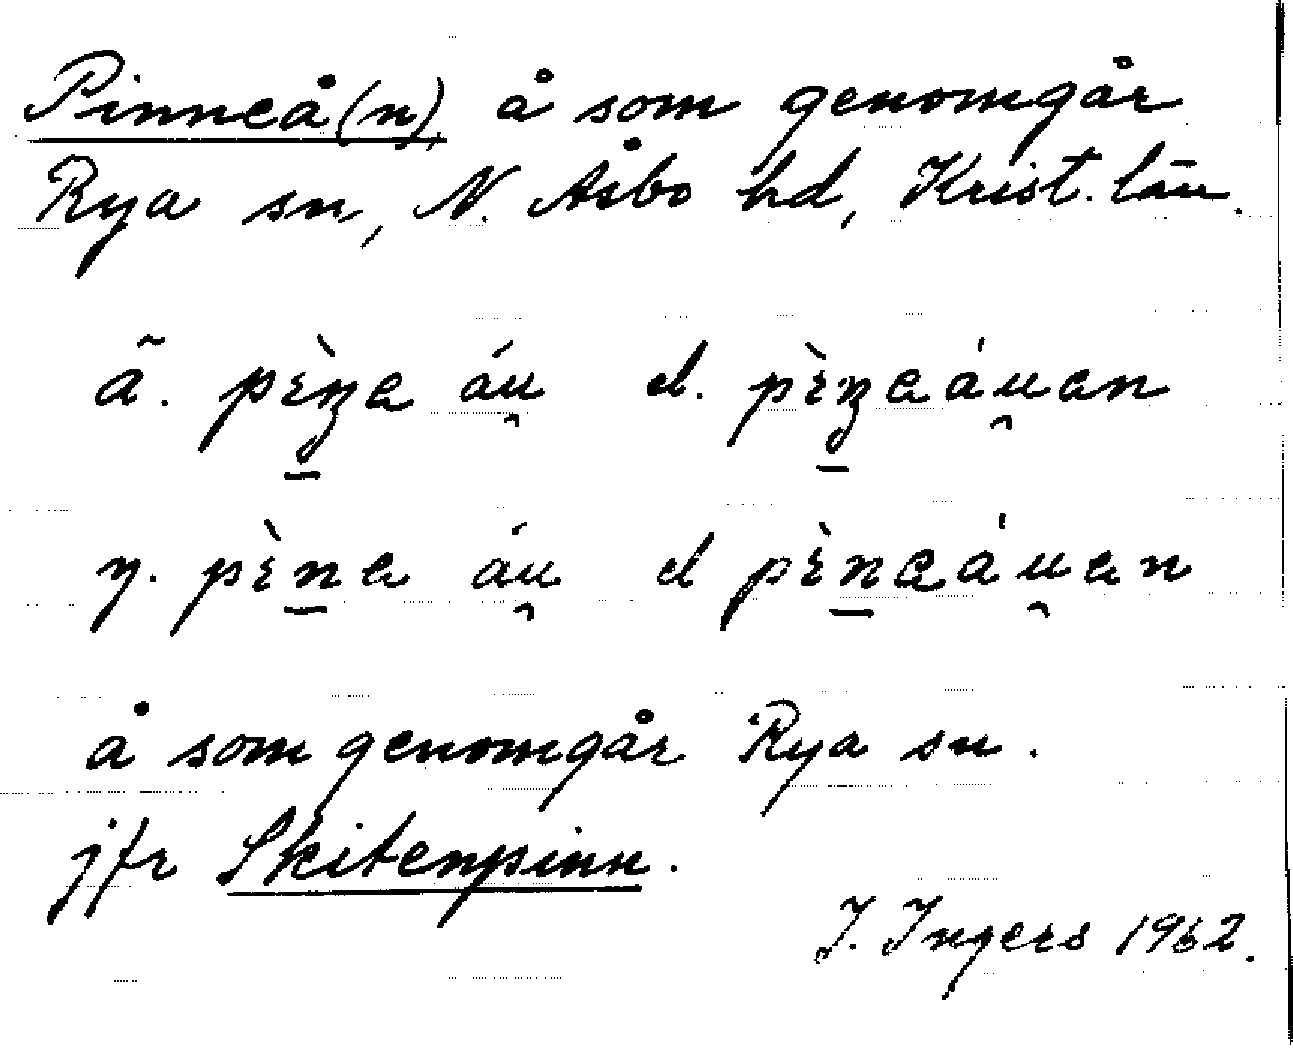 Pinneå(n), å som genomgår
Rya sn, N. Åsbo hd, Krist. län.
ä. pɛ̀nɐ áu̯ el. pɛ̀nɐáu̯ɐn
y. pɛ̀nɐ áu̯ el pɛ̀nɐáu̯ɐn
å som genomgår Rya sn.
jfr Skitenpinn.
I. Ingers 1962.